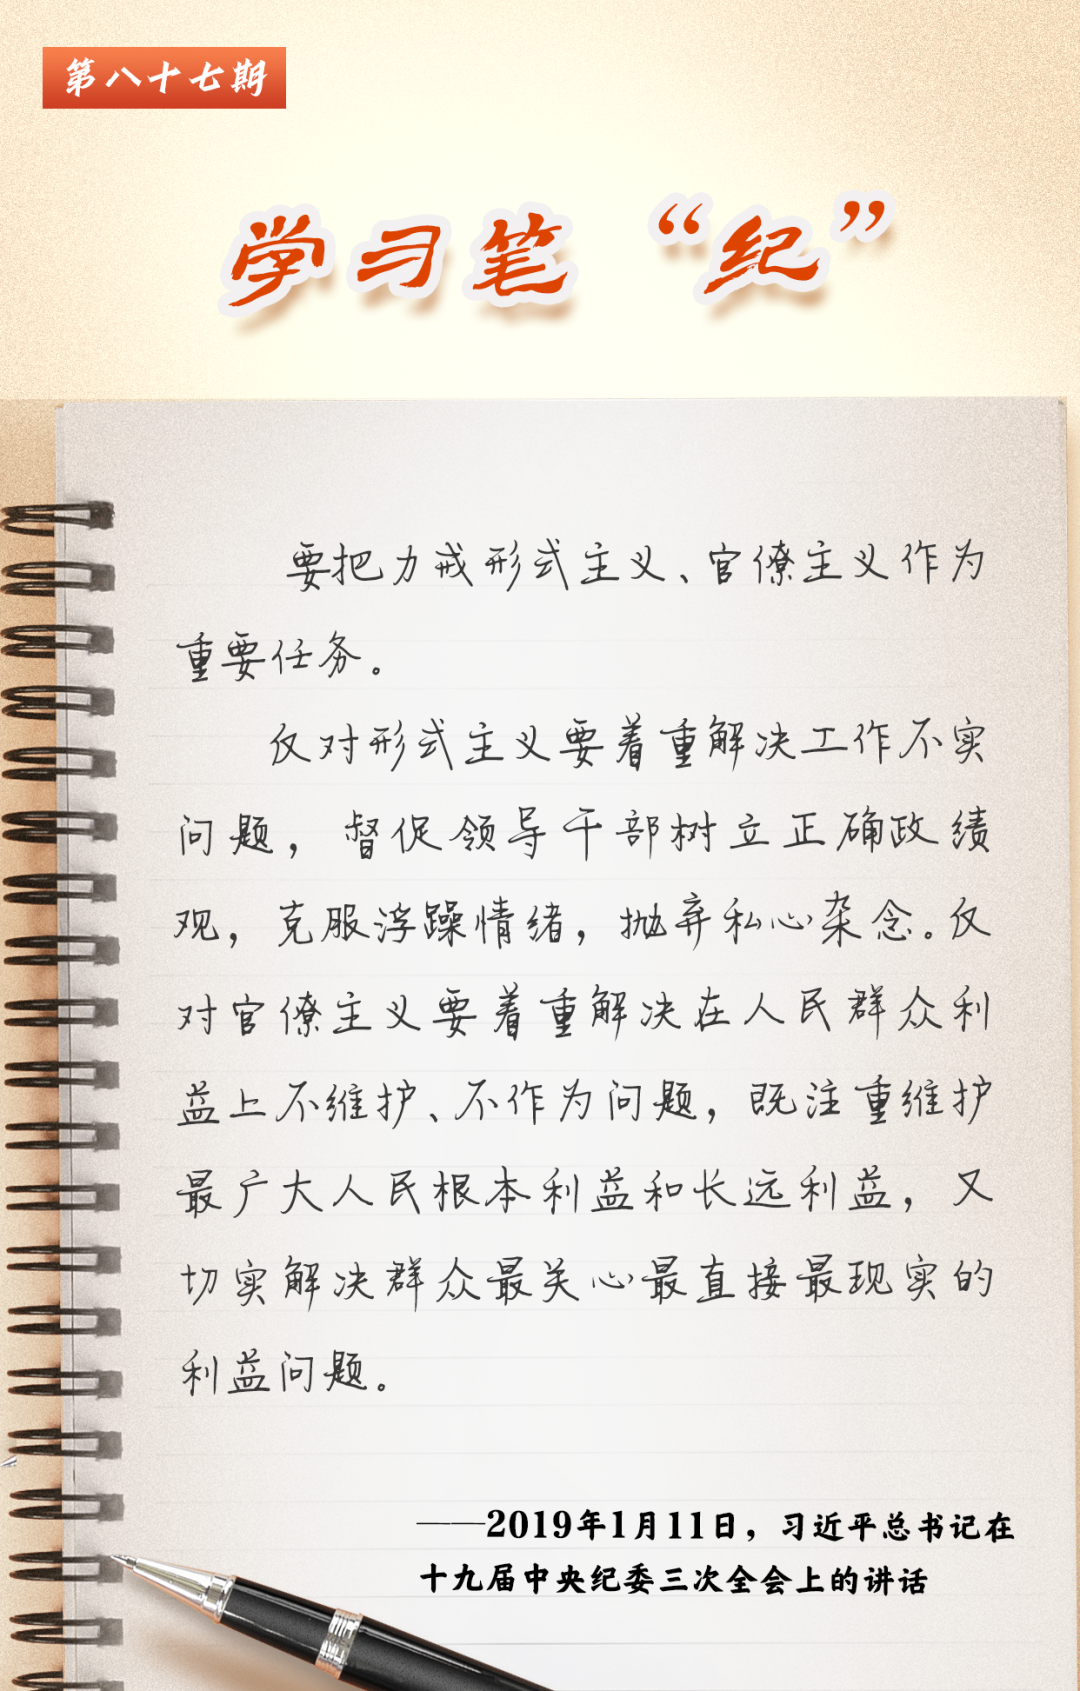 第八十七期
学习笔“纪”
要把力戒形式主义、官僚主义作为
重要任务。
仅对形式主义要着重解决工作不实
问题，督促领导干部树立正确政绩
观，克服浮躁情绪，抛弃私心杂念。仅
对官僚主义要着重解决在人民群众利
益上不维护、不作为问题，既注重维护
最广大人民根本利益和长远利益，又
切实解决群众最关心最直接最现实的
利益问题。
——2019年1月11日，习近平总书记在
十九届中央纪委三次全会上的讲话